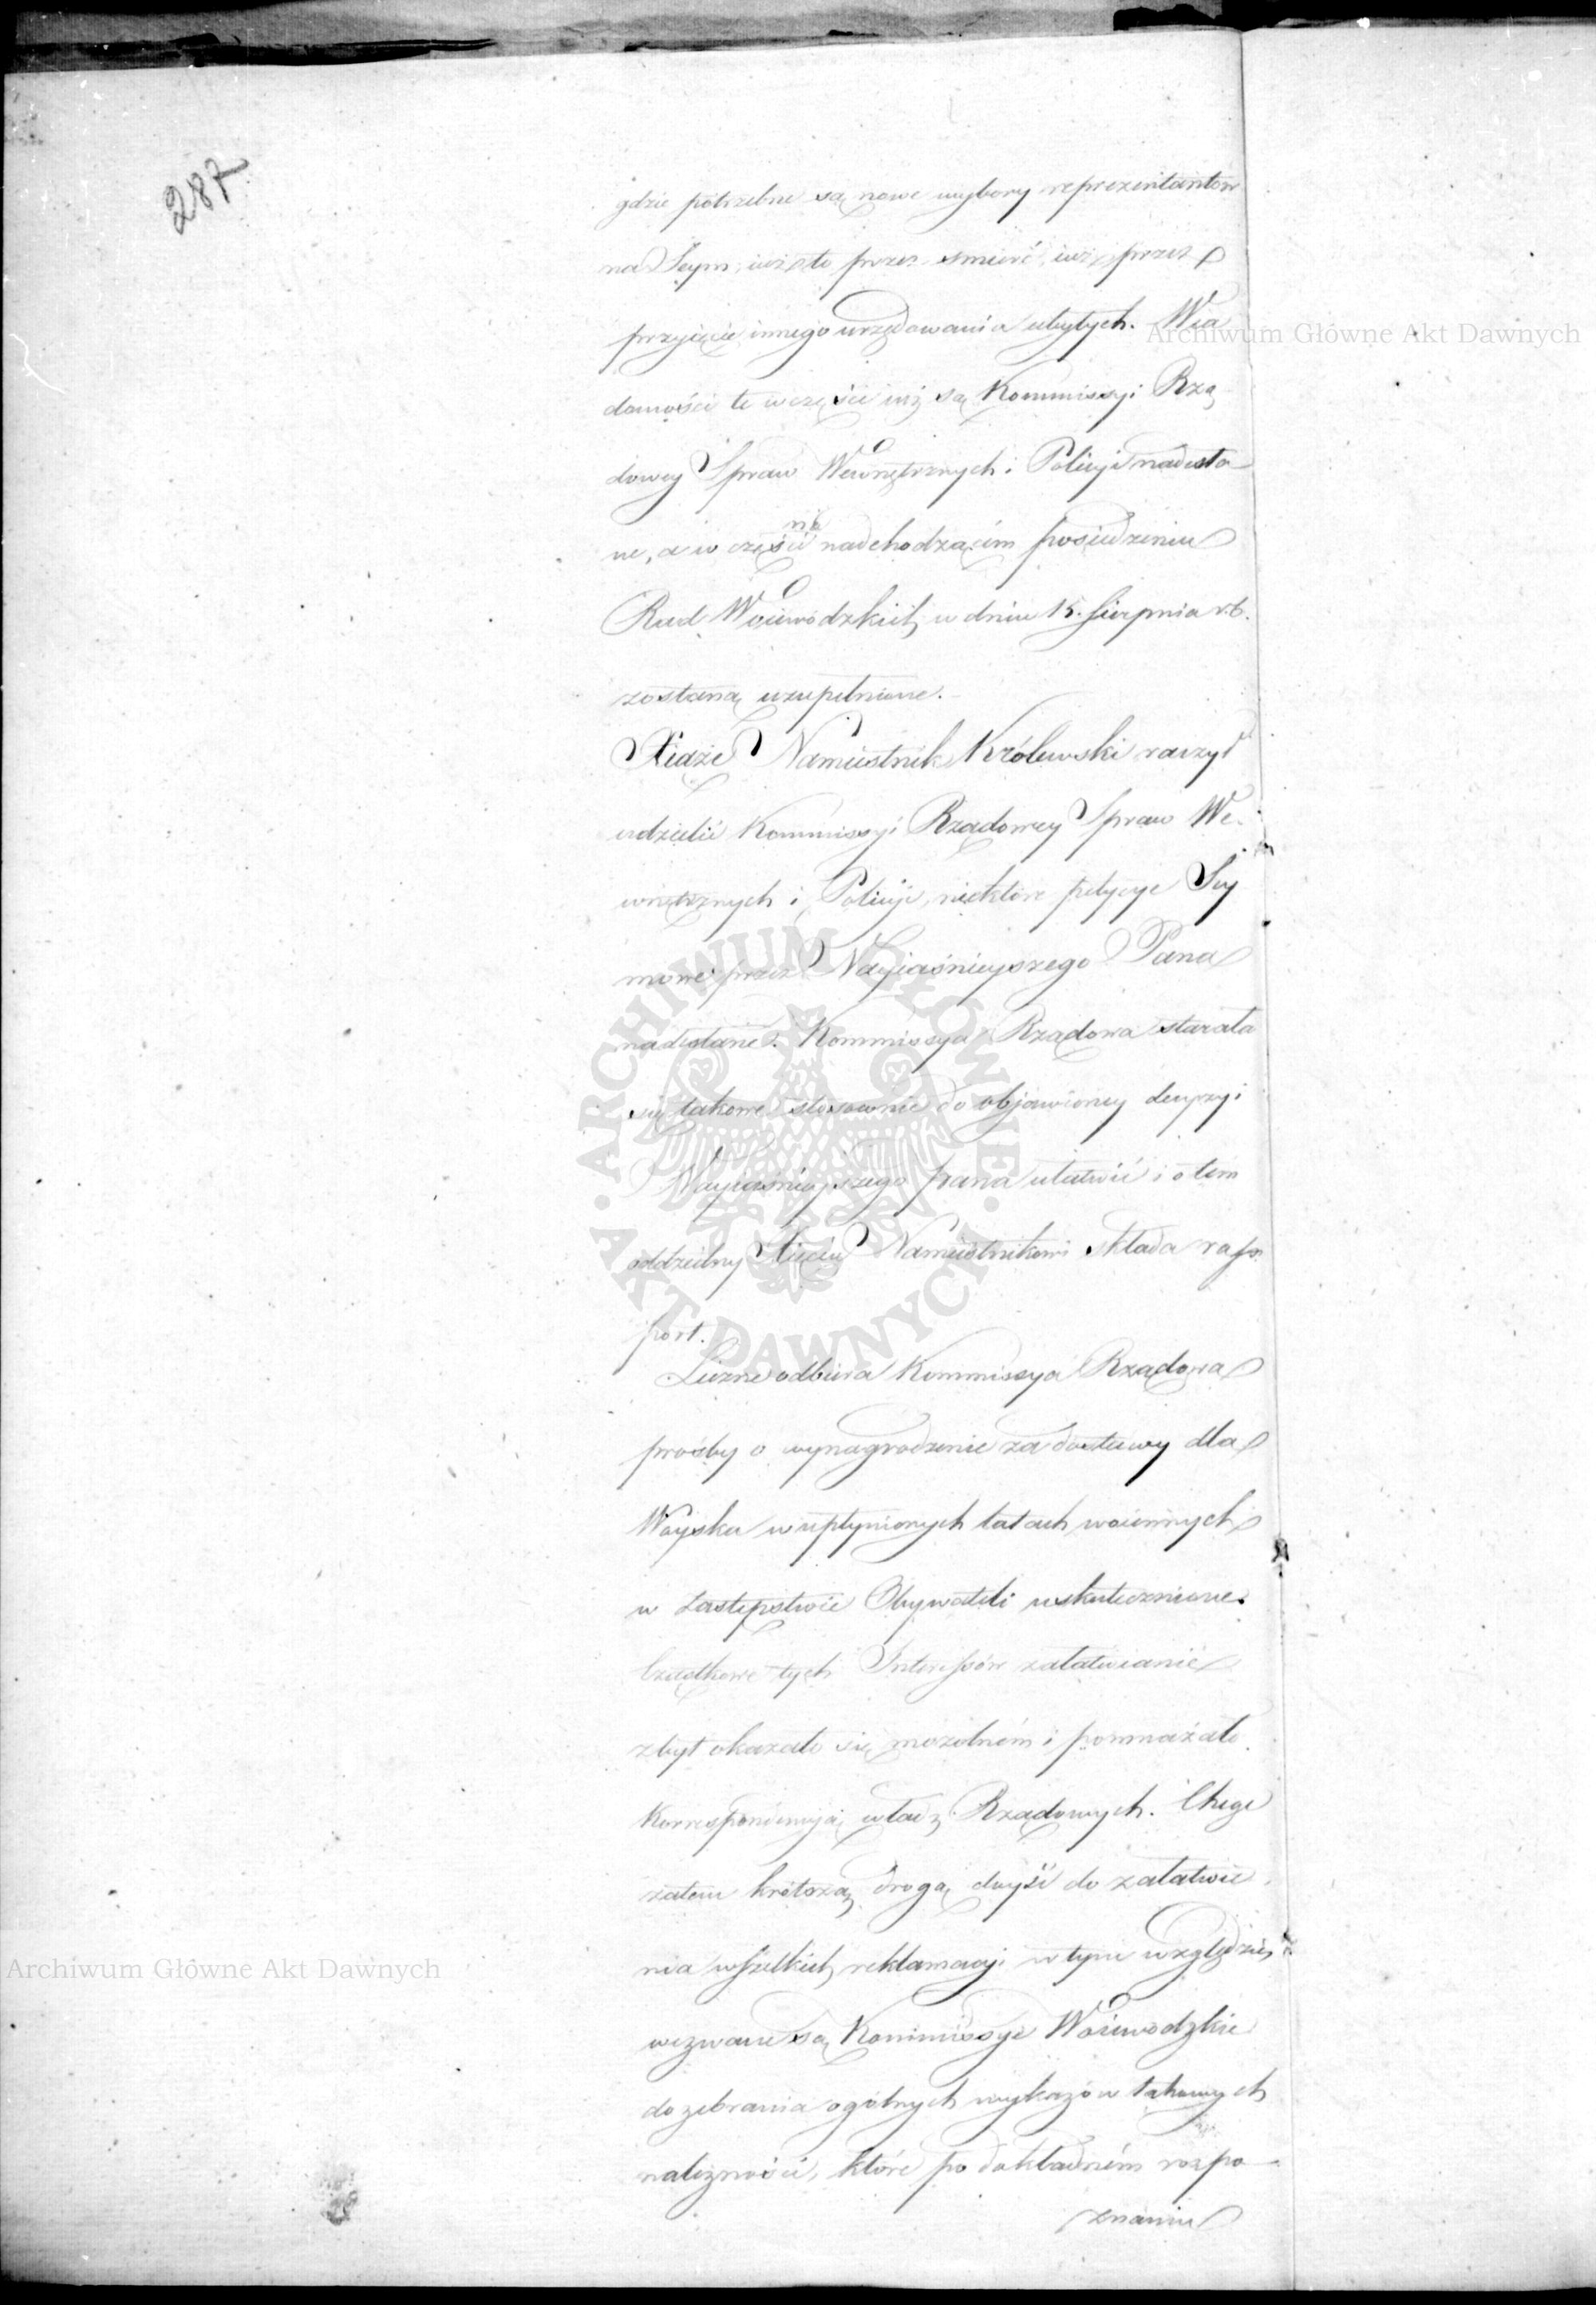 287
gdzie potrzebne są nowe wybory reprezentantów
na Seym, iuż to przez smierć, iuż przez
przyięcie innego urzędowania ubyłych. Wia
domości te w części iuż są Kommissyi Rzą
dowey Spraw Wewnętrznych i Policyi nadesła
ne, a w części na nadchodzącém posiedzeniu
Rad Woiewódzkich w dniu 15. Sierpnia r.b.
zostaną uzupełnione.
Xiąże Namiestnik Królewski raczył
udzielić Kommissyi Rządowey Spraw We
wnętrznych i Policyi, niektóre petycye Sey
mowe przez Nayiaśnieyszego Pana
nadesłane. Kommissya Rządowa starała
się takowe stosownie do objawioney decyzyi
Nayiaśnieyszego Pana ułatwić i o tém
oddzielny Xięciu Namiestnikowi składa rap
port.
Liczne odbiera Kommissya Rządowa
prośby o wynagrodzenie za dostawy dla
Woyska w upłynionych latach woiennych
w zastępstwie Obywateli uskutecznione.
Cząstkowe tych Interessów załatwianie
zbyt okazało się mozolném i pomnażało
Korrespondencyią władz Rządowych. Chcąc
zatem krótszą drogą dojść do załatwie
nia wszelkich reklamacyi w tym względzie,
wezwane są Kommissye Woiewódzkie
do zebrania ogólnych wykazów takowych
należności, które po dokładném rozpo
znaniu
Archiwum Główne Akt Dawnych
Archiwum Główne Akt Dawnych
ARCHIWUM GŁÓWNE AKT DAWNYCH